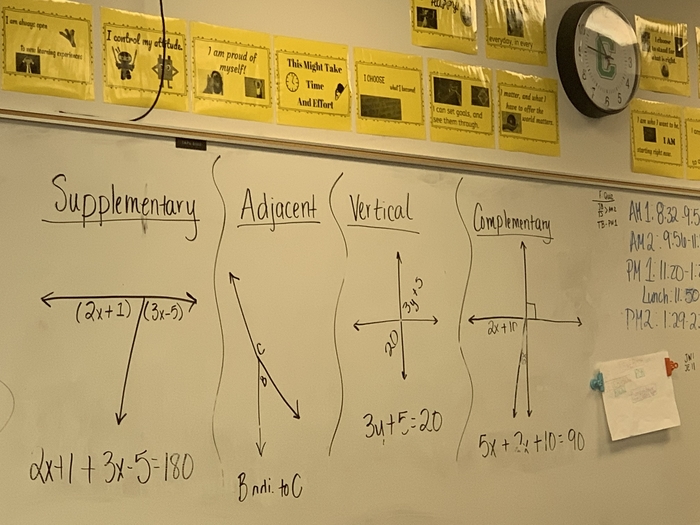 I am always open
to new learning experiences
I control my attitude.
I am proud of
myself!
This Might Take
Time
And Effort
I CHOOSE
what I become!
HAPPY!
I can set goals, and
see them through.
everyday, in every
I matter, and what I
have to offer the
world matters.
stand for what
is right.
I am who I want to be
I AM
starting right now.
Supplementary
(2x+1) (3x-5)
2x+1 + 3x-5=180
Adjacent
C
B
B adj. to C
Vertical
3y+5
20
3y+5=20
Complementary
2x+10
5x + 2x +10=90
AM 1: 8:32-9:5
AM 2: 9:56-11:
PM 1: 11:20-1:2
Lunch: 11:50
PM2: 1:29-2: